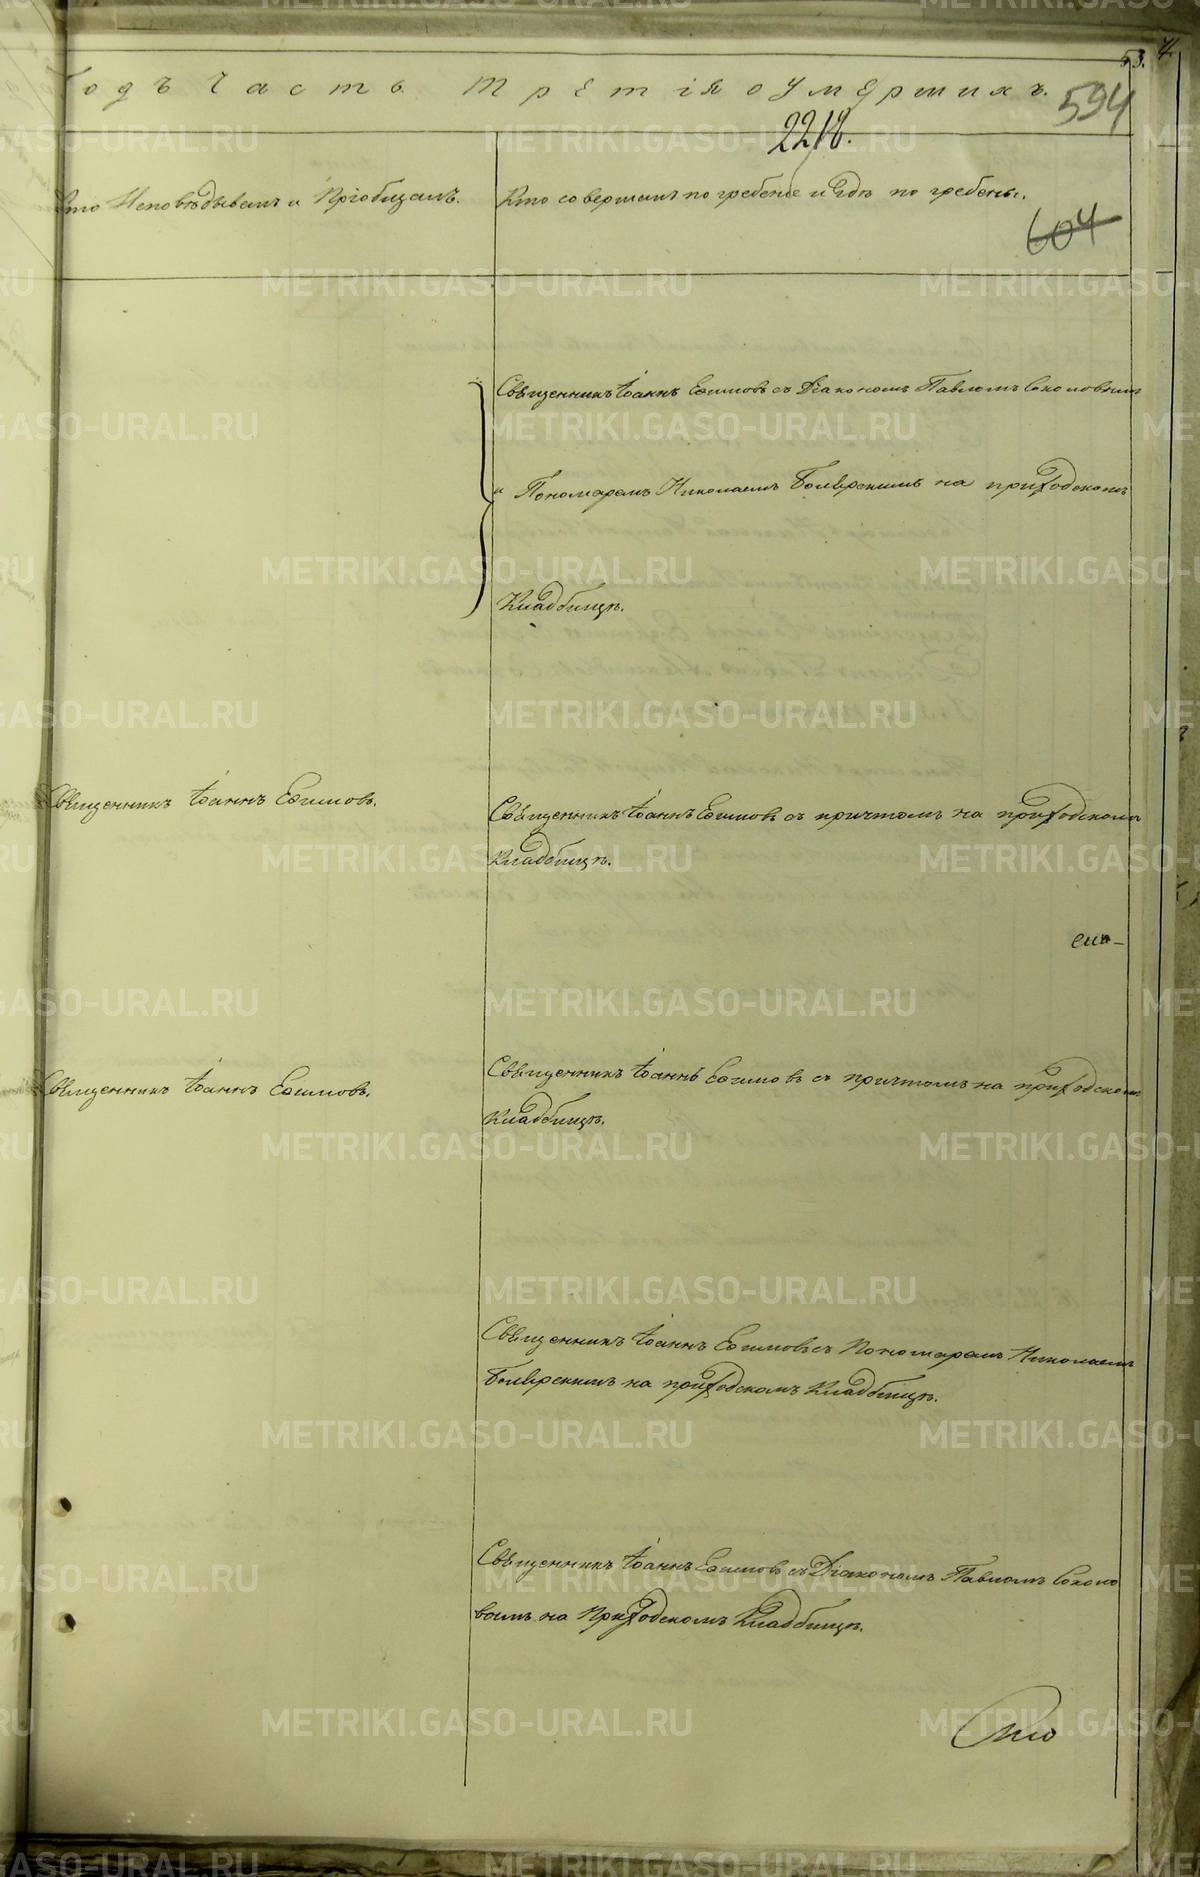 53.
Годъ Часть Третія о Умершихъ.
594
2218.
Кто Исповѣдывалъ и Пріобщалъ.
Кто совершалъ погребеніе и гдѣ погребены.
604
Священникъ Іоаннъ Ефимовъ съ Діакономъ Павломъ Соколовымъ
и Пономаремъ Николаемъ на приходскомъ
Кладбищѣ.
Священникъ Іоаннъ Ефимовъ.
Священникъ Іоаннъ Ефимовъ съ причтомъ на приходскомъ
Кладбищѣ.
Священникъ Іоаннъ Ефимовъ.
Священникъ Іоаннъ Ефимовъ съ причтомъ на приходскомъ
Кладбищѣ.
Священникъ Іоаннъ Ефимовъ съ Пономаремъ Николаемъ
на приходскомъ Кладбищѣ.
Священникъ Іоаннъ Ефимовъ съ Діакономъ Павломъ Соколо
вымъ на Приходскомъ Кладбищѣ.
METRIKI.GASO-URAL.RU